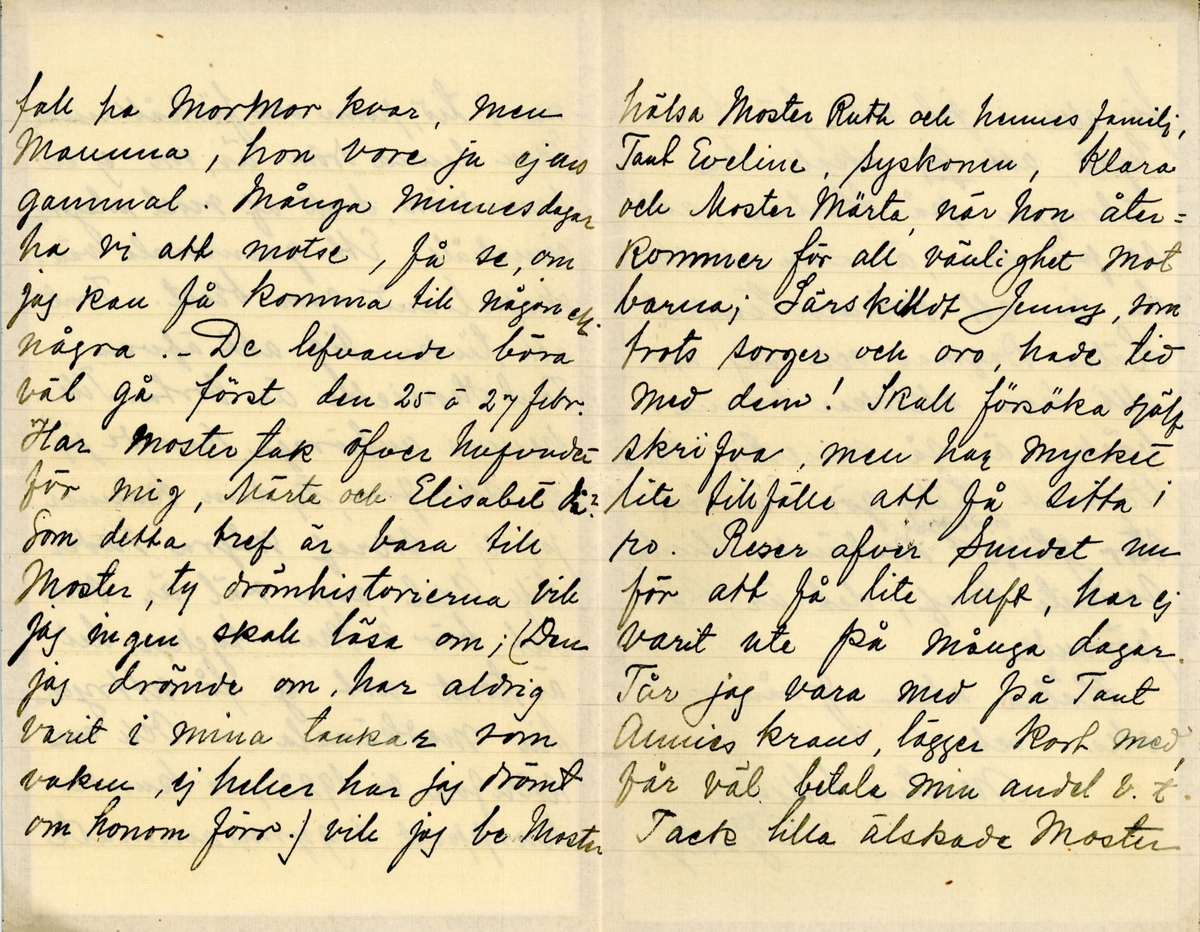 fall ha MorMor kvar, men
Mamma, hon vore ju ej ens
gammal. Många Minnesdagar
ha vi att motse, få se, om
jag kan få komma till någon ell.
några. - De lefvande böra
väl gå först den 25 à 27 febr.
Har Moster tak öfver hufvudet
för mig, Märta och Elisabet då?
Som detta bref är bara till
Moster, ty drömhistorierna vill
jag ingen skall läsa om; (Den
jag drömde om, har aldrig
varit i mina tankar som
vaken, ej heller har jag drömt
om honom förr.) vill jag be Moster
hälsa Moster Ruth och hennes familj,
Tant Eveline, syskonen, Klara
och Moster Märta, när hon åter=
kommer för all vänlighet mot
barna; Särskildt Jenny, som
trots sorger och oro, hade tid
med dem! Skall försöka själf
skrifva, men har mycket
lite tillfälle att få sitta i
ro. Reser öfver Sundet nu
för att få lite luft, har ej
varit ute på många dagar.
Får jag vara med på Tant
Annies krans, lägger kort med,
får väl betala min andel v. t.
Tack lilla älskade Moster